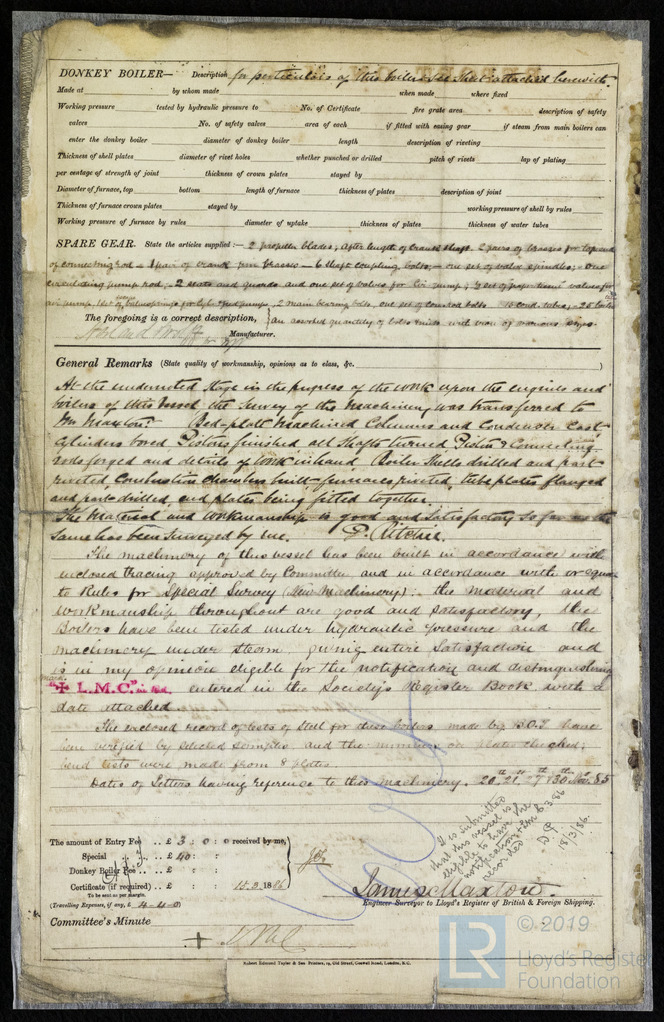 DONKEY BOILER— Description for particulars of this boiler see Sheet attached herewith.
Made at by whom made when made where fixed
Working pressure tested by hydraulic pressure to No. of Certificate fire grate area description of safety
valves No. of safety valves area of each if fitted with easing gear if steam from main boilers can
enter the donkey boiler diameter of donkey boiler length description of riveting
Thickness of shell plates diameter of rivet holes whether punched or drilled pitch of rivets lap of plating
per centage of strength of joint thickness of crown plates stayed by
Diameter of furnace, top bottom length of furnace thickness of plates description of joint
Thickness of furnace crown plates stayed by working pressure of shell by rules
Working pressure of furnace by rules diameter of uptake thickness of plates thickness of water tubes
SPARE GEAR. State the articles supplied:— 2 propeller blades, after length of crank shaft. 2 pairs of brasses for top end
of connecting rod – 1 pair of crank pin brasses – 6 shaft coupling bolts, – one set of valve spindles, – one
circulating pump rod, – 2 and guards and one set of valves for air pump, set of valves for
pump, 2 main bearing bolts, one set of bolts tubes, – 25
The foregoing is a correct description, an assorted quantity of bolts & nuts with iron of various sizes.
Manufacturer.
General Remarks (State quality of workmanship, opinions as to class, &c.
At the undernoted stage in the progress of the work upon the engines and
boilers of this Vessel the Survey of the Machinery was transferred to
Mr Maxton. Bed-plate machined Columns and Condenser Cast
Cylinders bored Pistons finished all Shafts turned Piston & Connecting
rods forged and details of work in hand. Boiler Shells drilled and part
riveted, Combustion chambers built – furnaces riveted, tube plates flanged
and part drilled, and plates being fitted together.
The Material and workmanship is good and Satisfactory so far as the
same has been Surveyed by me. P. Ritchie.
The machinery of this vessel has been built in accordance with
enclosed tracing approved by Committee, and in accordance with or equal
to Rules for Special Survey (New Machinery): the material and
workmanship throughout are good and satisfactory, the
Boilers have been tested under hydraulic pressure and the
machinery under steam giving entire satisfaction and
is in my opinion eligible for the notification and distinguishing
mark "✠ L.M.C." in red, entered in the Society's Register Book with a
date attached.
The enclosed record of tests of Steel for these boilers made by B.O.T have
been verified by selected samples and the numbers on plates checked;
bend tests were made from 8 plates.
Dates of Letters having reference to this machinery. 20th 21st 27th & 30th Nov. 85
It is submitted
that this vessel is
eligible to have the
notification + LMC 3.86
recorded
18/3/86.
The amount of Entry Fee .. £ 3 : 0 : 0 received by me,
Special .. £ 40 :
Donkey Boiler Fee .. £
Certificate (if required) .. £ 15.2.1886
To be sent as per margin.
(Travelling Expenses, if any, £ 4-4-0)
James Maxton.
Engineer Surveyor to Lloyd's Register of British & Foreign Shipping.
Committee's Minute
+ LMC
Robert Edmund Taylor & Son Printers, 19, Old Street, Goswell Road, London, E.C.
© 2019
LR
Lloyd's Register
Foundation